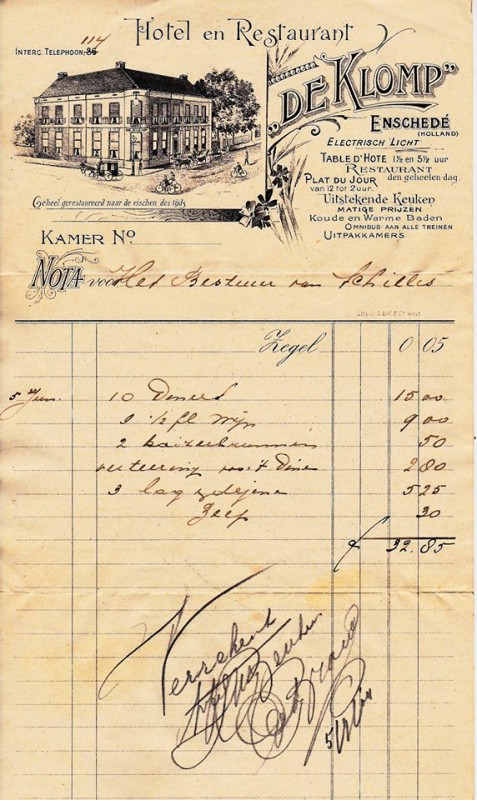 Hotel en Restaurant
117
INTERC. TELEPHOON: 36
"DE KLOMP"
ENSCHEDÉ
(HOLLAND)
ELECTRISCH LICHT
TABLE D'HOTE 1½ en 5½ uur
RESTAURANT
PLAT DU JOUR den geheelen dag.
van 12 tot 2 uur.
Uitstekende Keuken
MATIGE PRIJZEN
Koude en Warme Baden
OMNIBUS AAN ALLE TREINEN
UITPAKKAMERS
Geheel gerestaureerd naar de eischen des tijds
KAMER No
NOTA voor Het Bestuur van Achilles
Zegel 0 05
5 Jun. 10 Diners 15 00
9 ½ fl Wijn 9 00
2 kaizerbrunnen 50
verteering voor 't Diner 2 80
3 9 dejener 5 25
Zeep 30
f 32.85